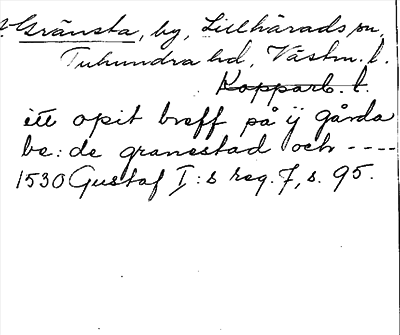 Gränsta, by, Lillhärads sn,
Tuhundra hd, Västm. l.
Kopparb. l.
itt opit breff på ij gårda
be: de granestad och ----
1530 Gustaf I:s reg. 7, s. 95.